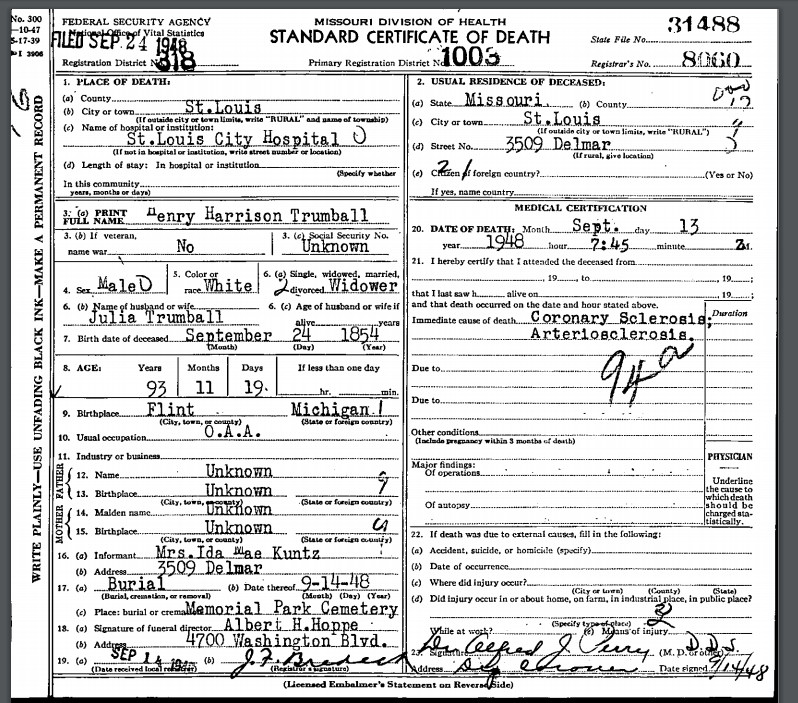 No. 300
-10-47
5-17-39
I 3906
FEDERAL SECURITY AGENCY
National Office of Vital Statistics
FILED SEP 24 1948
Registration District No. 318
MISSOURI DIVISION OF HEALTH
STANDARD CERTIFICATE OF DEATH
Primary Registration District No. 1003
31488
State File No.
Registrar's No. 8060
WRITE PLAINLY—USE UNFADING BLACK INK—MAKE A PERMANENT RECORD
1. PLACE OF DEATH:
(a) County
(b) City or town St.Louis
(If outside city or town limits, write "RURAL" and name of township)
(c) Name of hospital or institution:
St.Louis City Hospital
(If not in hospital or institution, write street number or location)
(d) Length of stay: In hospital or institution
(Specify whether
In this community
years, months or days)
3. (a) PRINT FULL NAME Henry Harrison Trumball
3. (b) If veteran, name war No
3. (c) Social Security No. Unknown
4. Sex Male
5. Color or race White
6. (a) Single, widowed, married, divorced Widower
6. (b) Name of husband or wife Julia Trumball
6. (c) Age of husband or wife if alive years
7. Birth date of deceased September 24 1854
(Month) (Day) (Year)
8. AGE: Years Months Days If less than one day
93 11 19 hr. min.
9. Birthplace Flint Michigan
(City, town, or county) (State or foreign country)
10. Usual occupation O.A.A.
11. Industry or business
FATHER
12. Name Unknown
13. Birthplace Unknown
(City, town, or county) (State or foreign country)
MOTHER
14. Maiden name Unknown
15. Birthplace Unknown
(City, town, or county) (State or foreign country)
16. (a) Informant Mrs.Ida Mae Kuntz
(b) Address 3509 Delmar
17. (a) Burial (b) Date thereof 9-14-48
(Burial, cremation, or removal) (Month) (Day) (Year)
(c) Place: burial or cremation Memorial Park Cemetery
18. (a) Signature of funeral director Albert H.Hoppe
(b) Address 4700 Washington Blvd.
19. (a) SEP 14 (b) J. F. Bredeck
(Date received local registrar) (Registrar's signature)
2. USUAL RESIDENCE OF DECEASED:
(a) State Missouri (b) County
(c) City or town St.Louis
(If outside city or town limits, write "RURAL")
(d) Street No. 3509 Delmar
(If rural, give location)
(e) Citizen of foreign country? (Yes or No)
If yes, name country
MEDICAL CERTIFICATION
20. DATE OF DEATH: Month Sept. day 13
year 1948 hour 7:45 minute
21. I hereby certify that I attended the deceased from
, 19 , to , 19 ;
that I last saw h alive on , 19 ;
and that death occurred on the date and hour stated above.
Duration
Immediate cause of death Coronary Sclerosis;
Arteriosclerosis.
94a
Due to
Due to
Other conditions
(Include pregnancy within 3 months of death)
PHYSICIAN
Major findings:
Of operations
Of autopsy
Underline the cause to which death should be charged statistically.
22. If death was due to external causes, fill in the following:
(a) Accident, suicide, or homicide (specify)
(b) Date of occurrence
(c) Where did injury occur?
(City or town) (County) (State)
(d) Did injury occur in or about home, on farm, in industrial place, in public place?
(Specify type of place)
While at work? (e) Means of injury
23. Signature Dr Alfred J. Perry (M. D. or other) D.D.S.
Address Date signed 9/14/48
(Licensed Embalmer's Statement on Reverse Side)